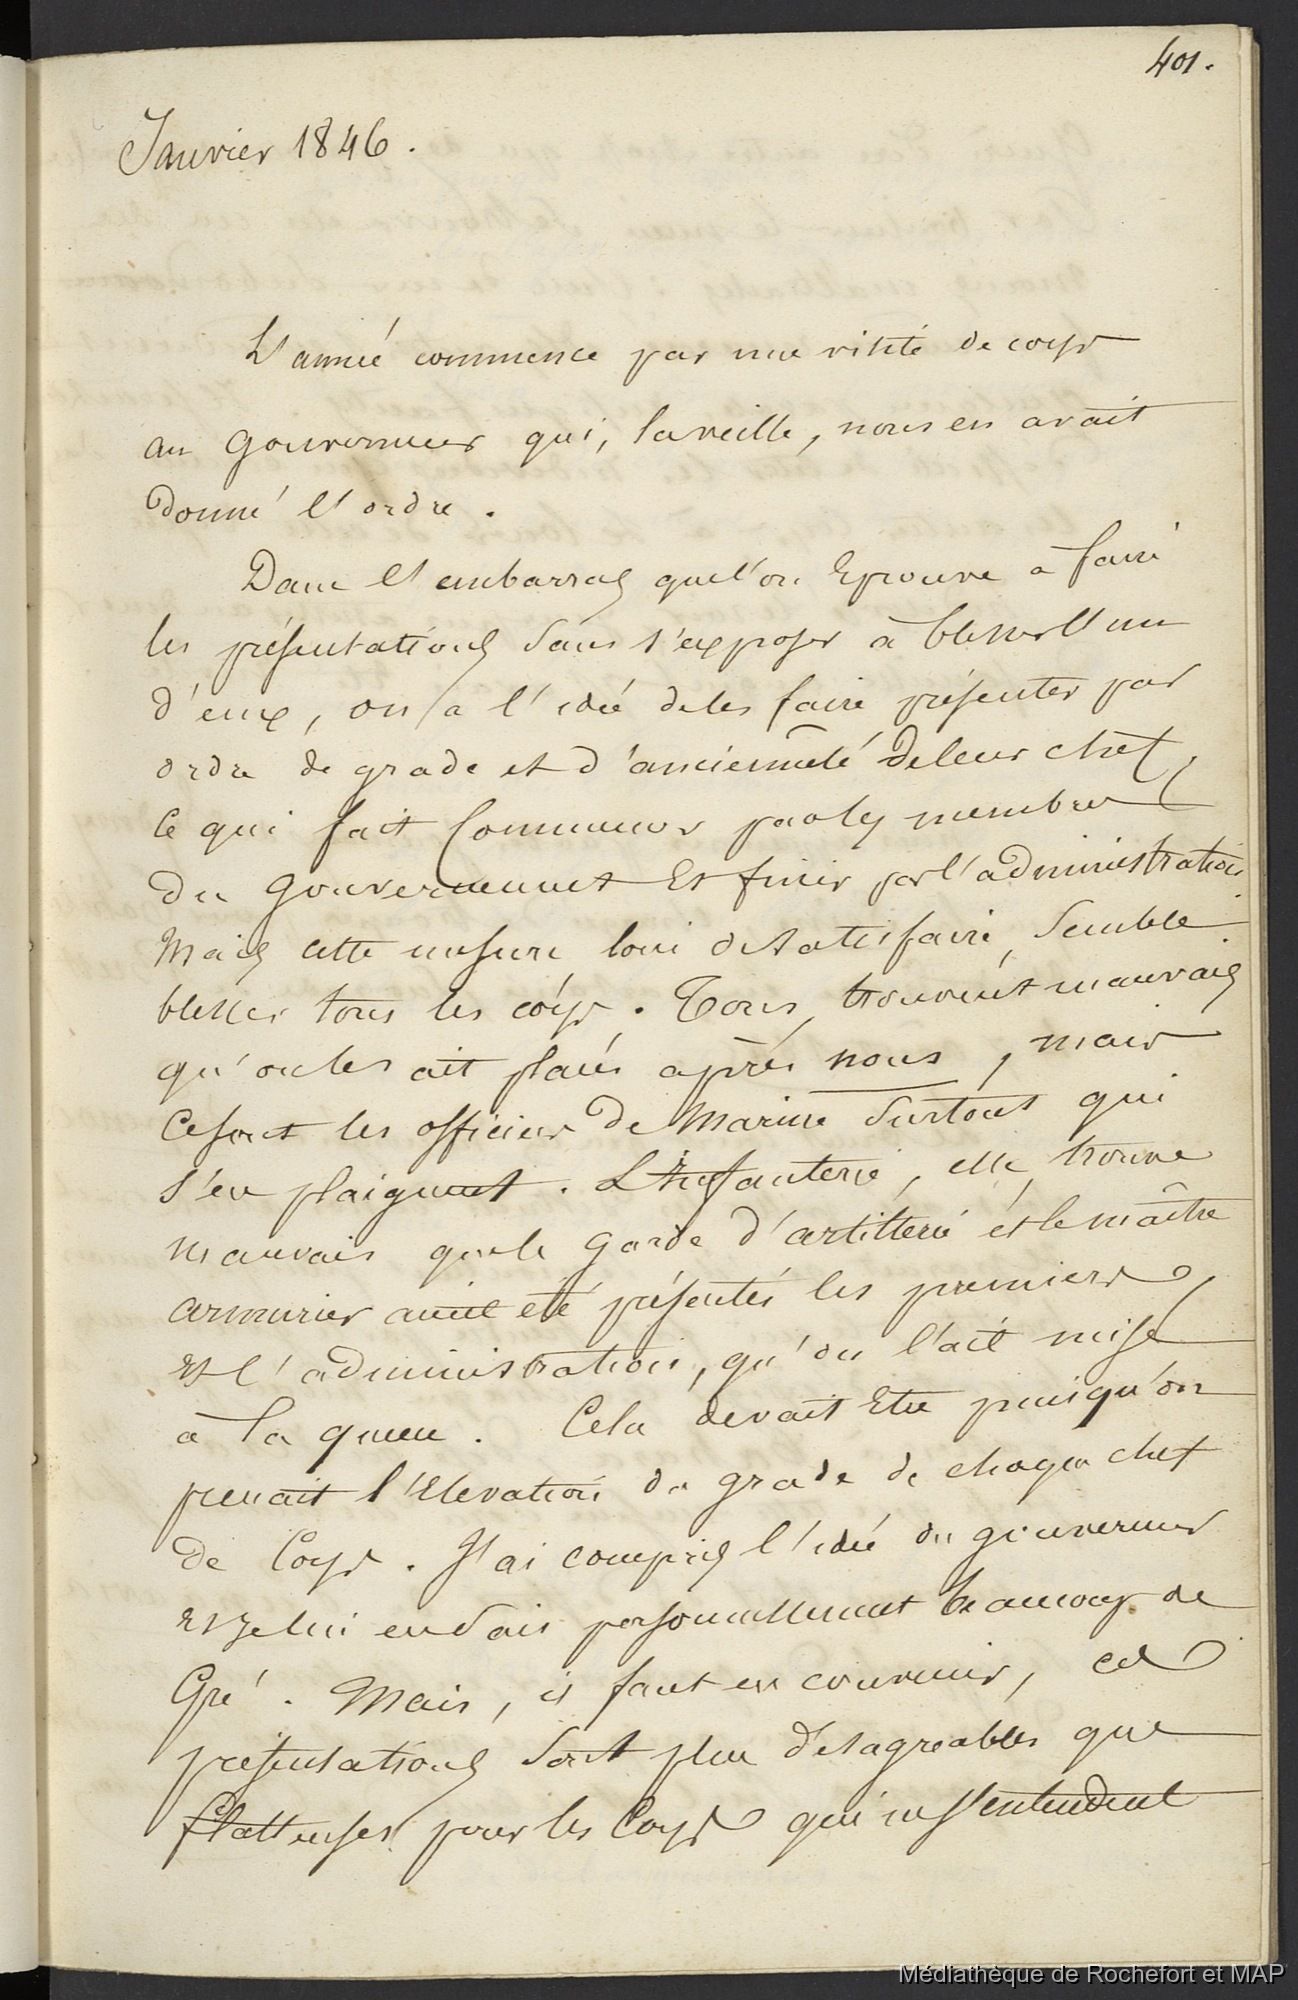 401.
Janvier 1846.
L'année commence par une visite de corps
au Gouverneur qui, la veille, nous en avait
donné l'ordre.
Dans l'embarras que l'on Eprouve à faire
les présentations sans s'exposer à blesser l'un
d'eux, on a l'idée de les faire présenter par
ordre de grade et d'ancienneté de leur chef,
ce qui fait Commencer par les membres
du Gouvernement Et finir par l'administration.
Mais cette mesure loin de satisfaire, semble
blesser tous les corps. Tous, trouvent mauvais
qu'on les ait placés après nous, mais
ce sont les officiers de Marine surtout qui
s'en plaignent. L'Infanterie, elle, trouve
mauvais que le garde d'artillerie et le maître
armurier aient été présentés les premiers,
Et l'administration, qu'on l'ait mise
à la queue. Cela devait Etre puisqu'on
prenait l'Elevation du grade de chaque chef
de Corps. J'ai compris l'idée du gouverneur
Et je lui en sais personnellement beaucoup de
Gré. Mais, il faut en convenir, ces
présentations sont plus désagréables que
flatteuses pour les Corps qui ne s'entendent
Médiathèque de Rochefort et MAP